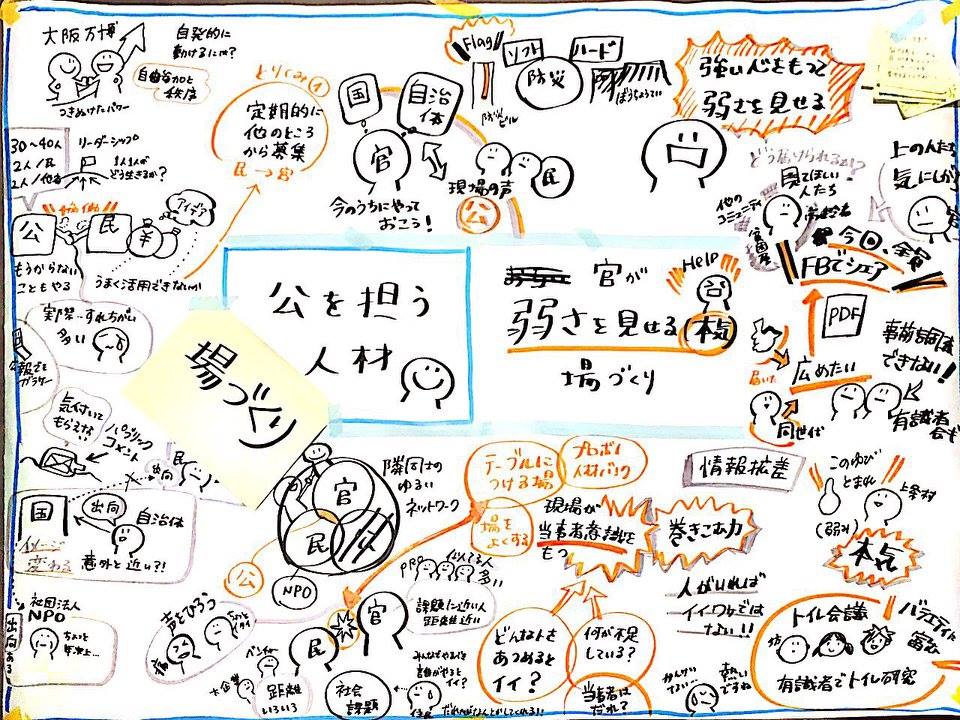 大阪万博
自発的に
動けるには?
自由参加と
秩序
つきぬけたパワー
とりくみ①
定期的に
他のところ
から募集
民→官
国
自治
体
官
今のうちにやって
おこう!
現場の声
民
公
Flag
ソフト
ハード
防災
防災ビル
ぼうちょうてい
強い心をもって
弱さを見せる
どう届けられるか!?
見てほしい
人たち
他の
コミュニティ
上の人た
気にしな
30〜40人
2人/民
2人/他省
リーダーシップ
1人1人が
どう生きるか?
公
民
¥
アイデア
もうからない
こともやる
うまく活用できないか
公を担う
人材
場づくり
官が
弱さを見せる本気
場づくり
Help
今回、全員
FBでシェア
PDF
広めたい
届いた
同世代
事前調査
できない!
有識者
会ギ
実際…すれちがい
多い
気付いて
もらえな!!
パブリック
コメント
出向
民
国
出向
自治体
イメージ
変わる
意外と近い?!
社団法人
NPO
ちょっと
出向
ある
官
民
公
NPO
隣同士の
ゆるい
ネットワーク
テーブルに
つける場
プロボノ
人材バンク
場を
よくする
現場が
当事者意識を
もつ
巻きこみ力
情報拡差
このゆび
とまれ
(弱み)
上条村
本気
似てる人
多い
課題に近い人
距離近い
声をひろう
官
民
ベンチャー
大企業
距離
いろいろ
社会
課題
みんなでやるべき
だれがなんとかしてくれる!!
どんな人を
あつめると
イイ?
何が不足
している?
当事者は
だれ?
人がいれば
イイワケでは
ない!!
熱い
ですね
トイレ会議
バラエティに
富む
有識者でトイレ研究